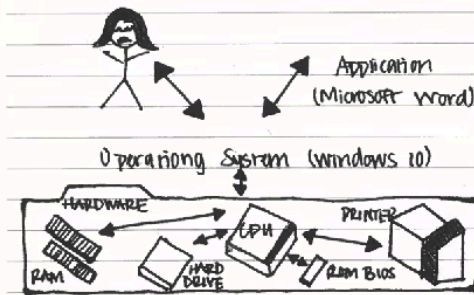 Application
(Microsoft Word)
Operationg System (Windows 10)
HARDWARE
CPU
PRINTER
RAM
HARD
DRIVE
ROM BIOS